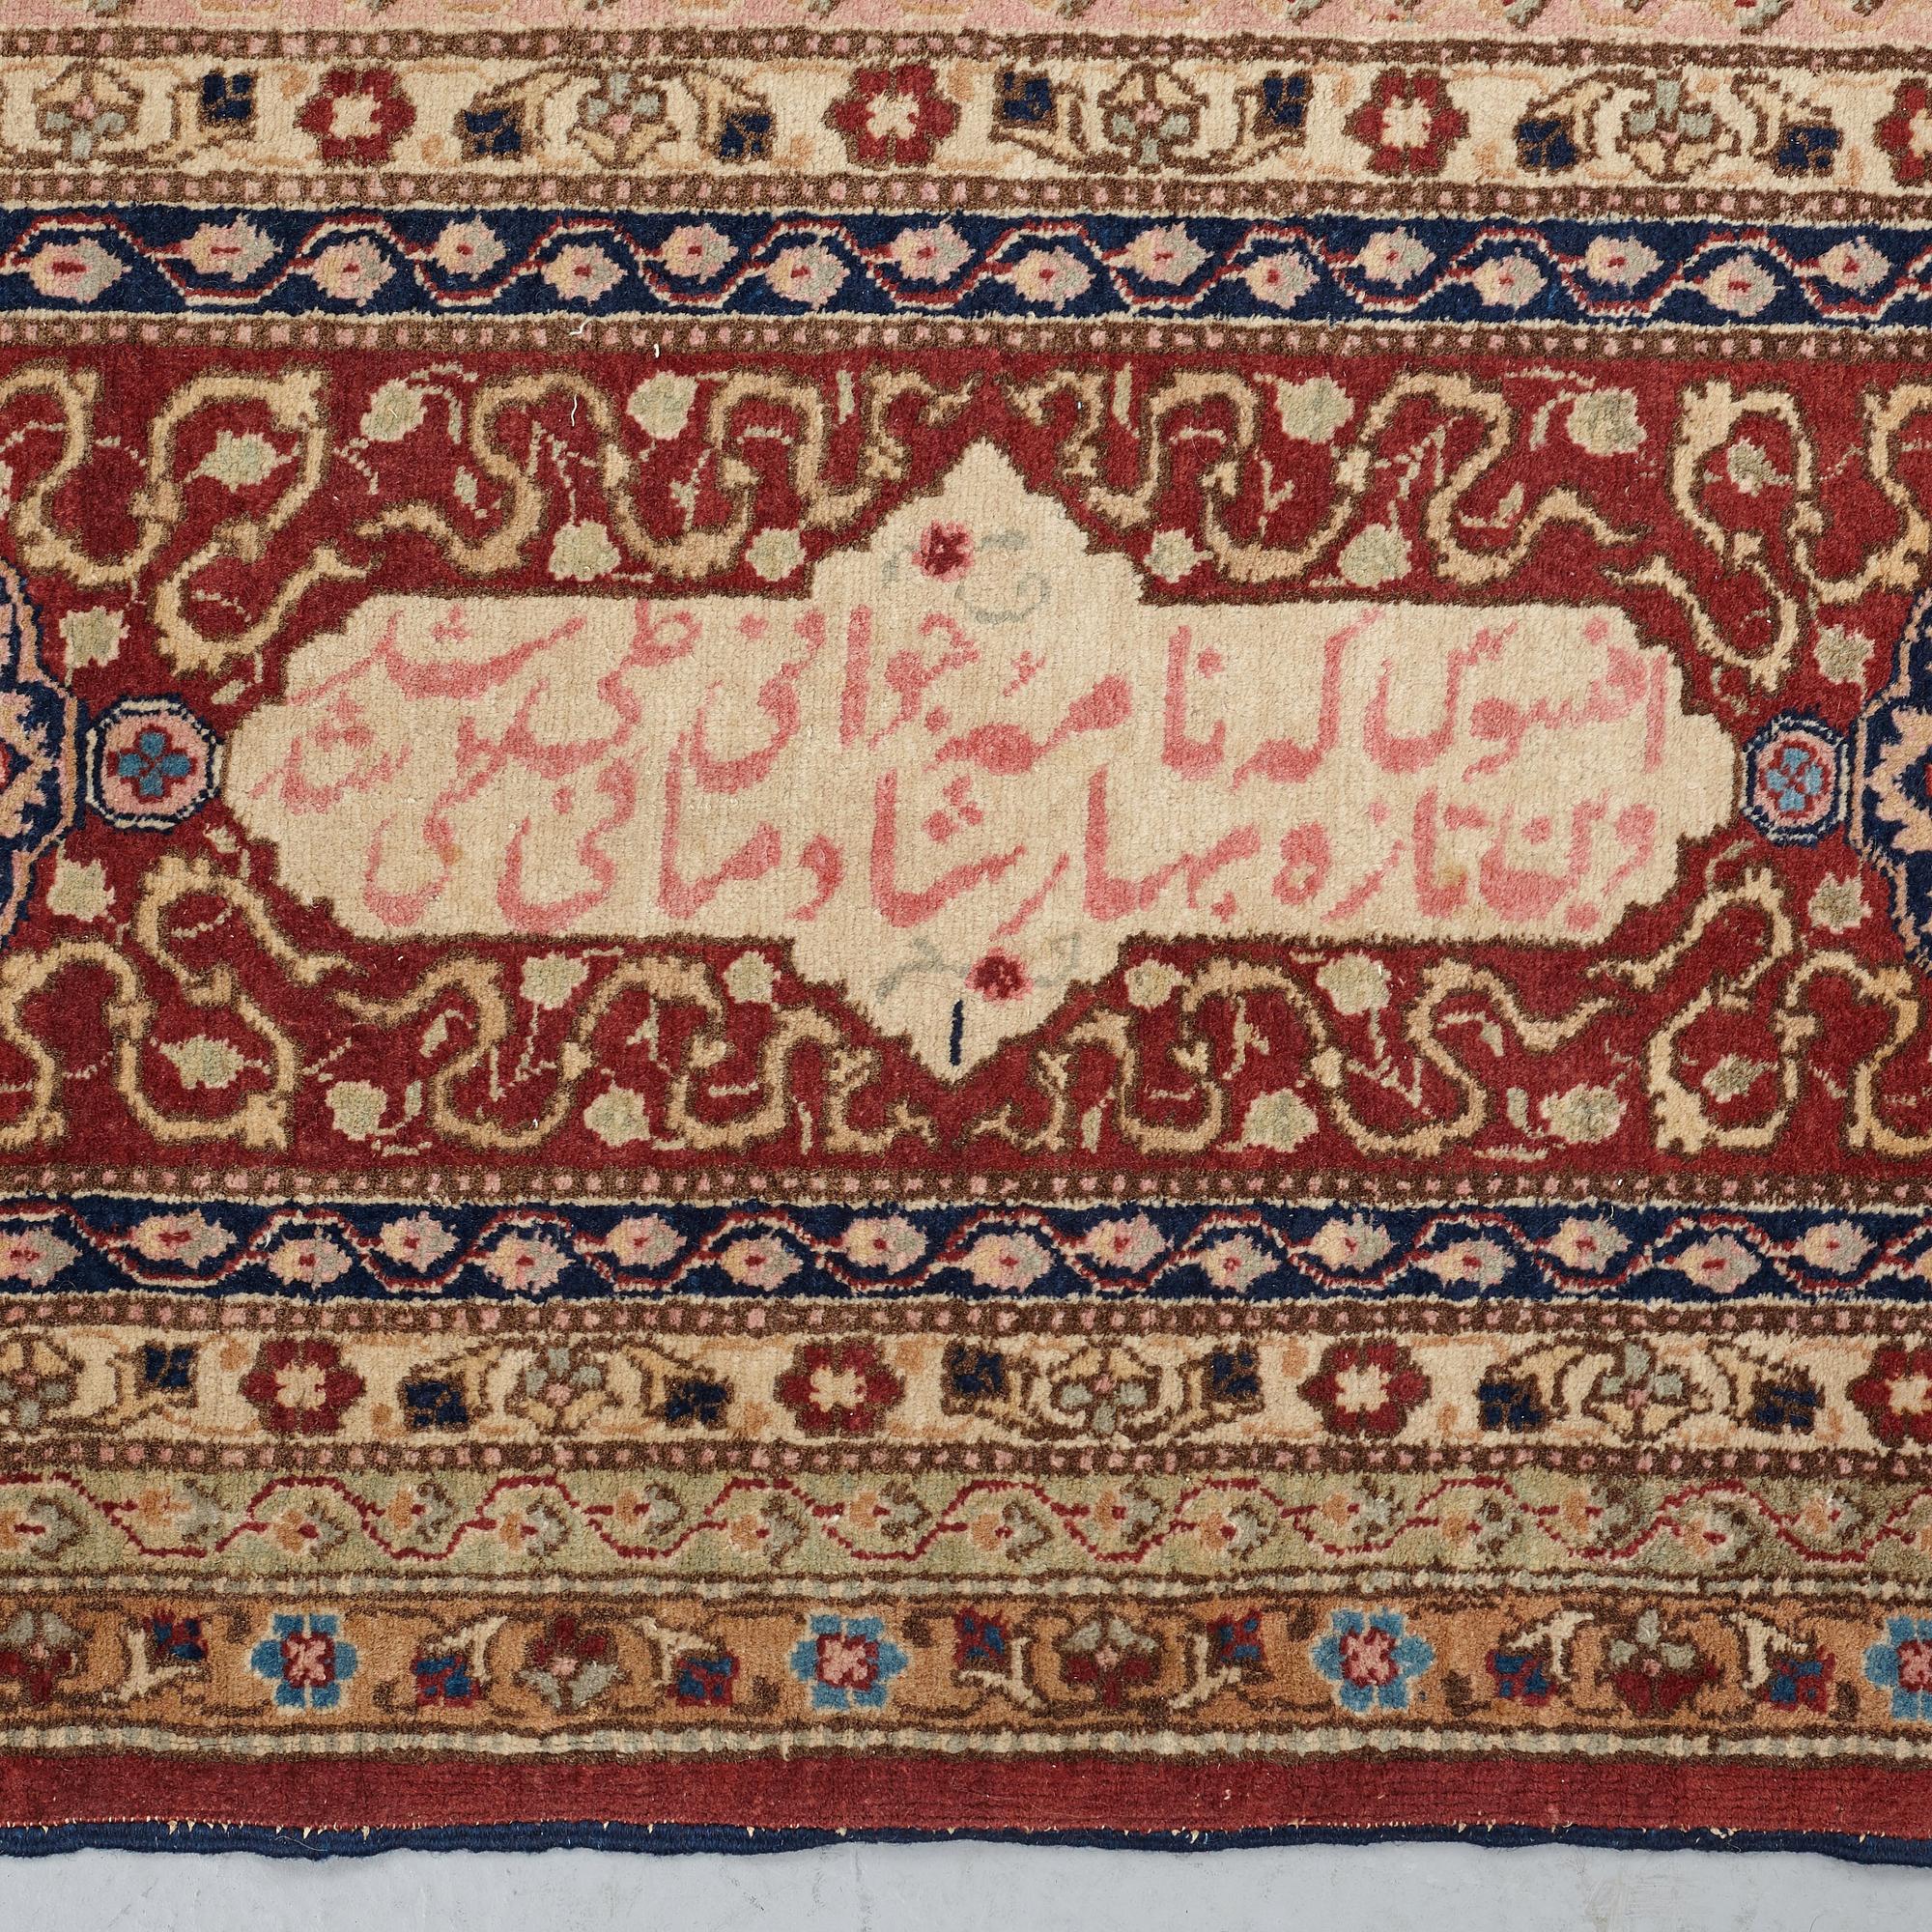 افسوس که نامه جوانی طی شد
وین تازه بهار شادمانی دی شد
۱